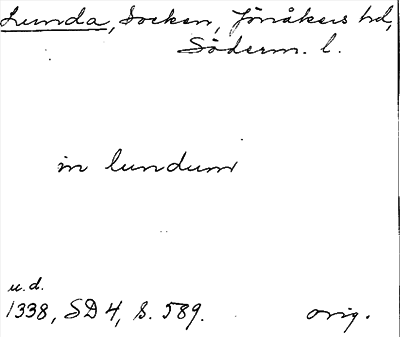 Lunda, Socken, Jönåkers hd,
Söderm. l.
in lundum
u.d.
1338, SD 4, s. 589. orig.